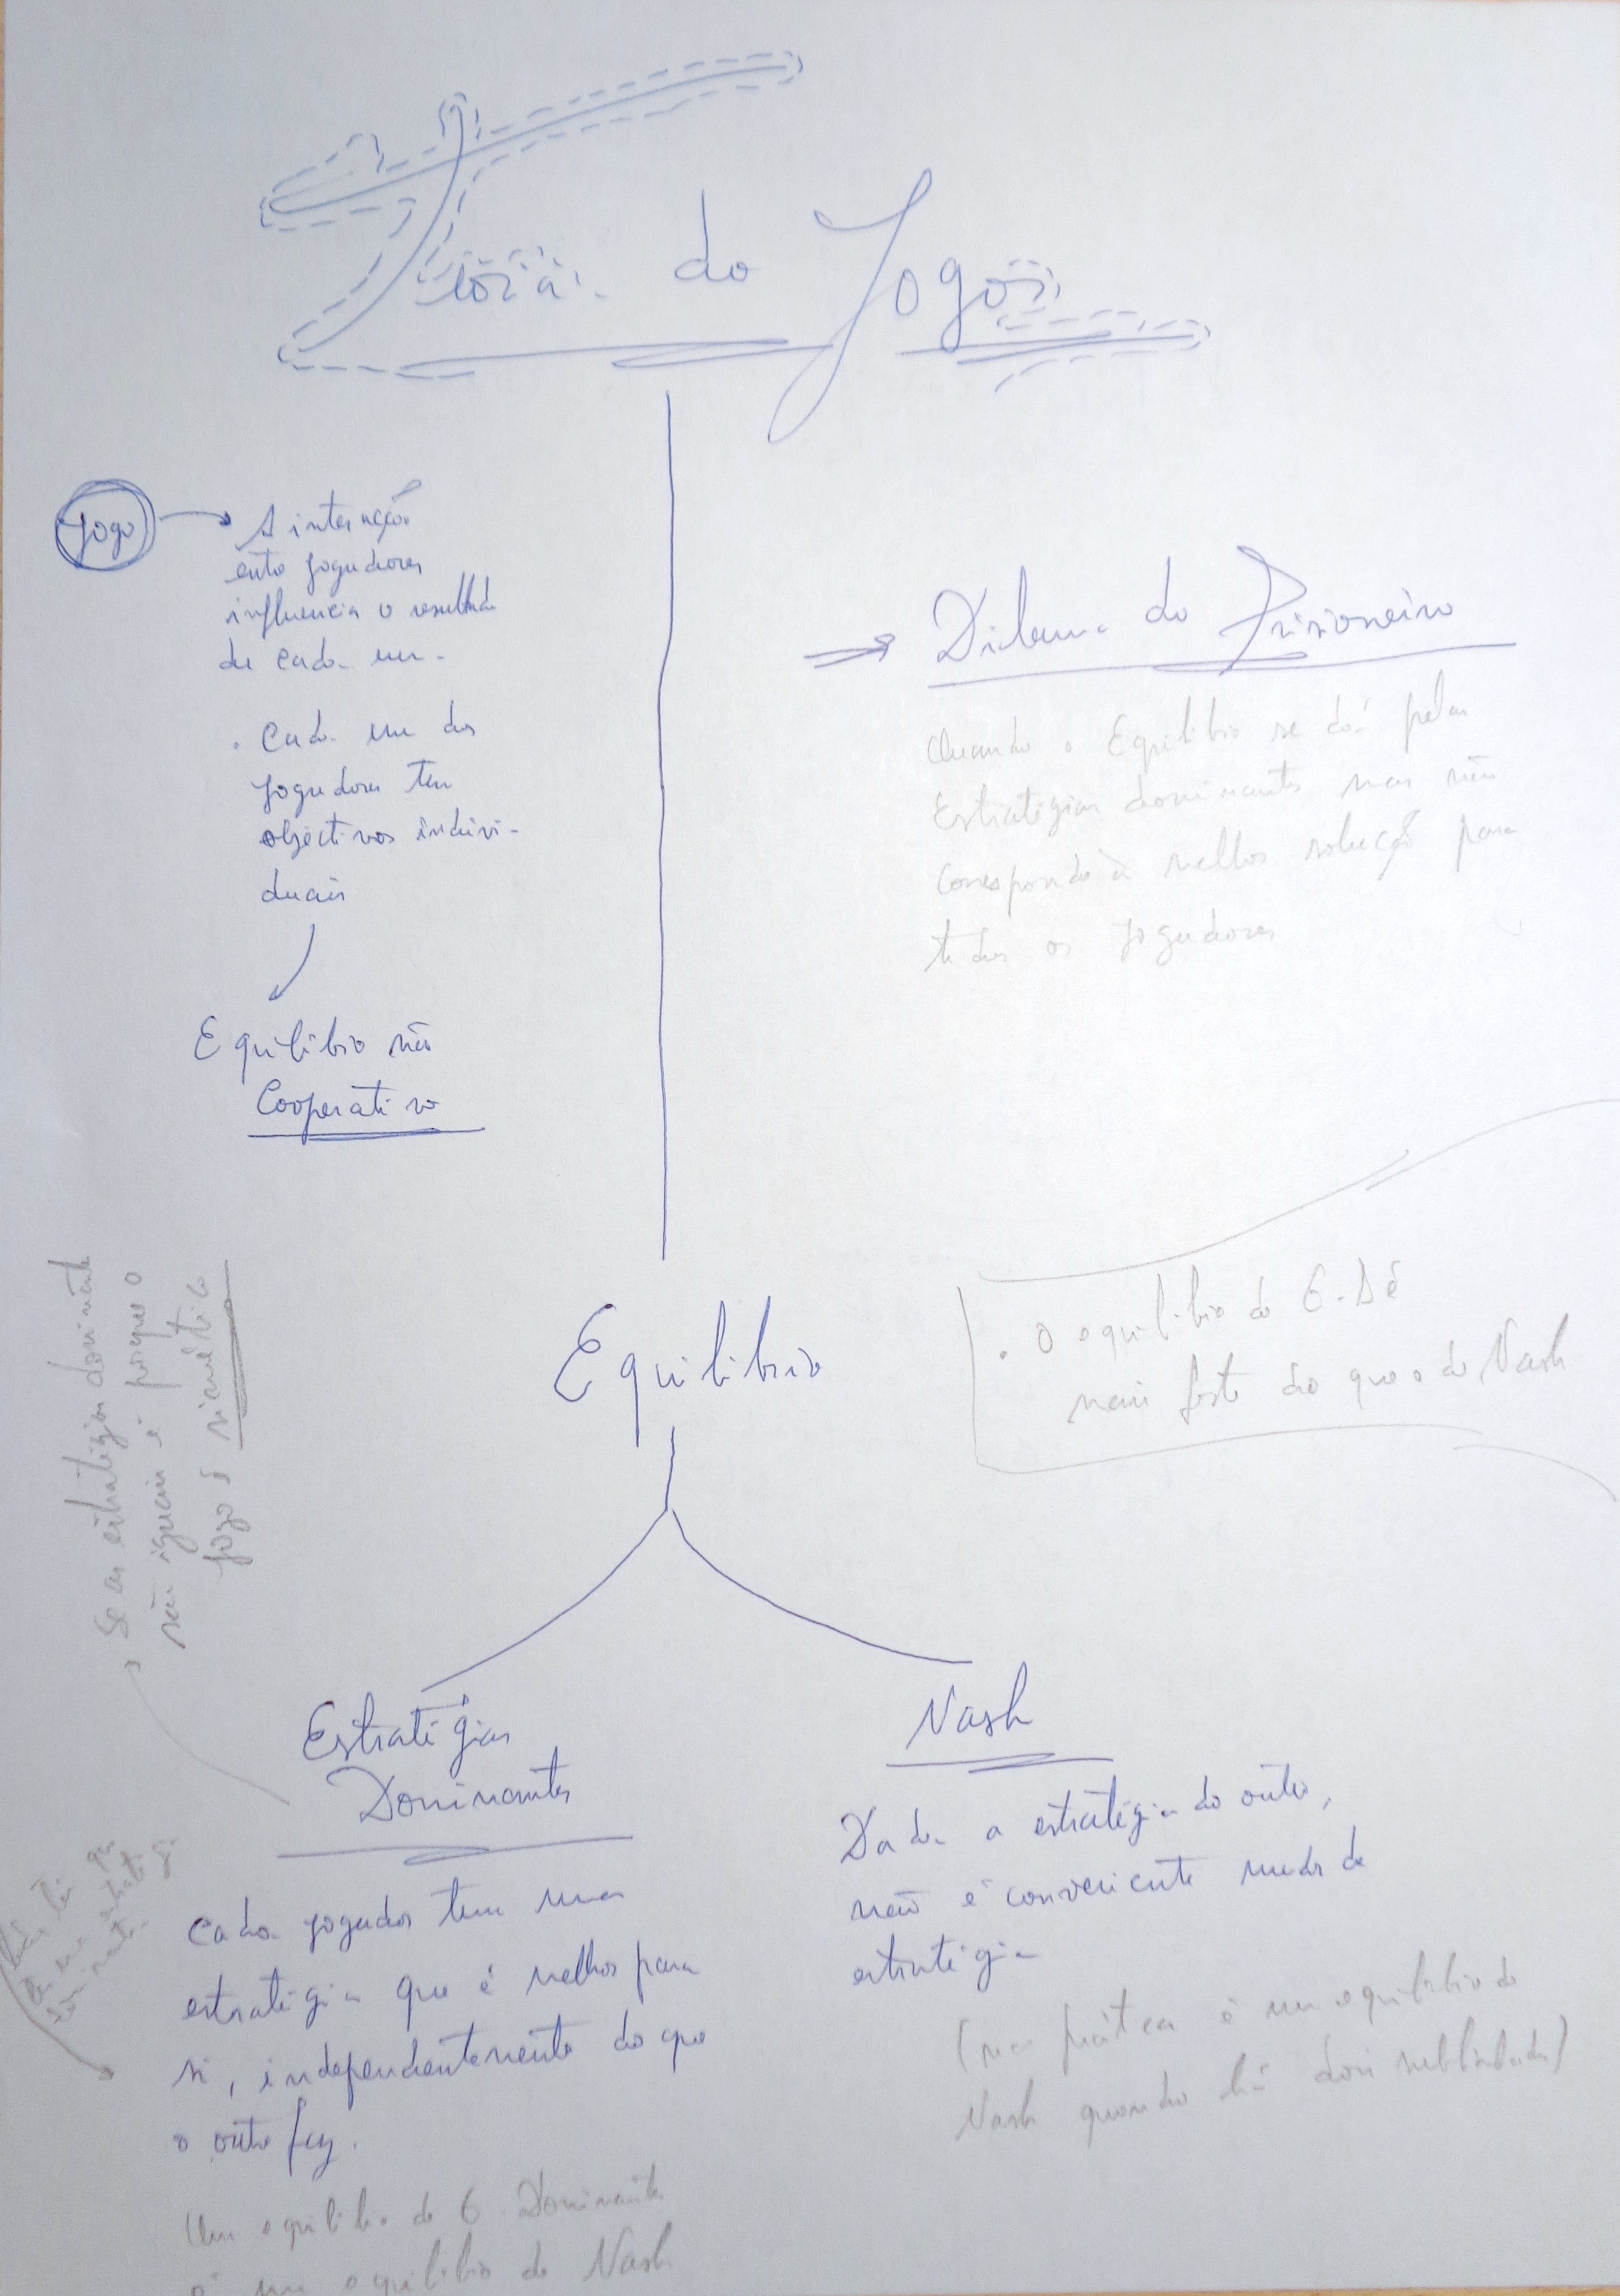 Teoria do Jogo
Jogo
A interação
entre jogadores
influencia o resultado
de cada um.
. Cada um dos
jogadores tem
objectivos indivi-
duais
Equilíbrio não
Cooperativo
Dilema do Prisioneiro
Quando o Equilíbrio se dá pelas
Estratégias dominantes mas não
corresponde à melhor solução para
todos os jogadores
Equilíbrio
. O equilíbrio do E.D é
mais forte do que o do Nash
Se as estratégias dominante
são iguais é porque o
jogo é simétrico
Estratégias
Dominantes
Cada jogador tem uma
estratégia que é melhor para
si, independentemente do que
o outro faz.
Um equilíbrio de E. Dominante
é um equilíbrio de Nash
Nash
Dada a estratégia do outro,
não é conveniente mudar de
estratégia
(na prática é um equilíbrio de
Nash quando há dois sublinhados)